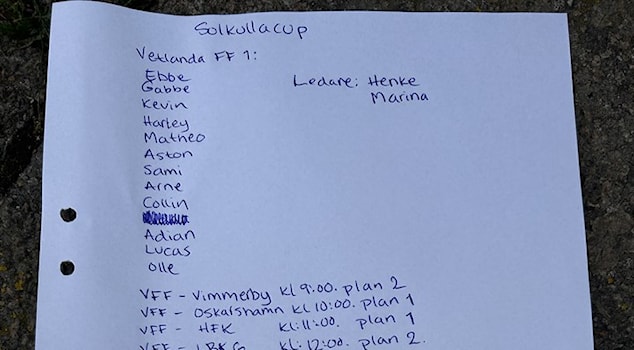 Solkullacup
Vetlanda FF 1:
Ebbe
Gabbe
Kevin
Harley
Matheo
Aston
Sami
Arne
Collin
Adian
Lucas
Olle
Ledare: Henke
Marina
VFF - Vimmerby Kl 9:00. plan 2
VFF - Oskarshamn Kl 10:00. plan 1
VFF - HFK Kl: 11:00. plan 1
VFF - kl: 12:00. plan 2.